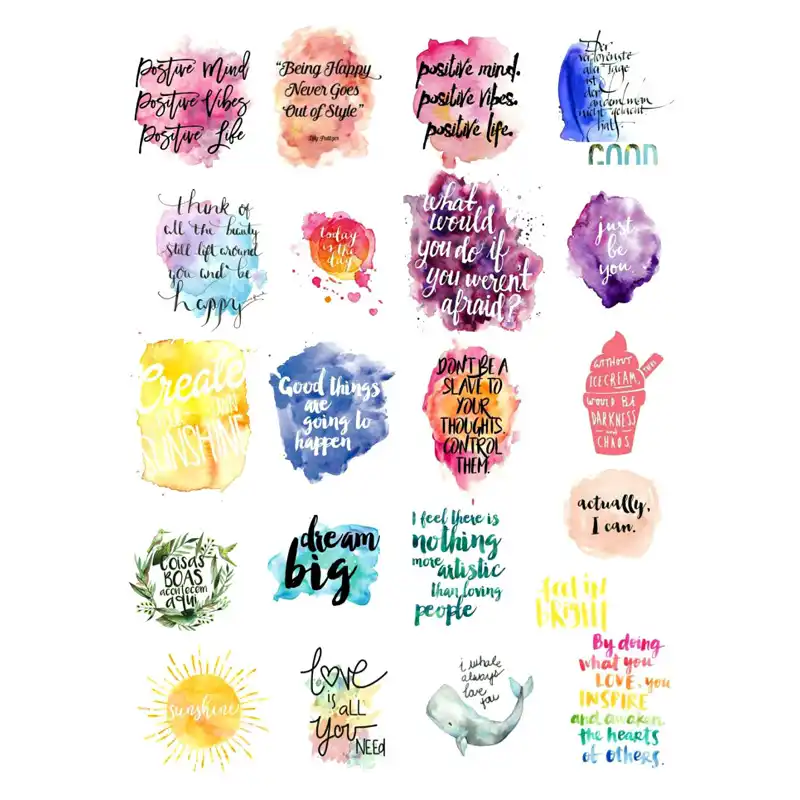 Postive Mind
Positive Vibes
Positive Life
"Being Happy
Never Goes
Out of Style"
Lilly Pulitzer
positive mind.
positive vibes.
positive life.
Der
verlorenste
aller Tage
ist
der
an dem man
nicht gelacht
hat.
GOOD
think of
all the beauty
still left around
you and be
happy
today
is the
day
what
would
you do if
you weren't
afraid?
just
be
you.
Create
your own
SUNSHINE
Good things
are
going to
happen
DON'T BE A
SLAVE TO
YOUR
THOUGHTS.
CONTROL
THEM.
WITHOUT
ICECREAM, THERE
WOULD BE
DARKNESS
and
CHAOS.
actually,
I can.
COISAS
BOAS
acontecem
aqui
dream
big
I feel there is
nothing
more artistic
than loving
people
BRIGHT
sunshine
love
is ALL
you
NEED
i whale
always
love
you
By doing
what you
LOVE, you
INSPIRE
and awaken
the hearts
of others.